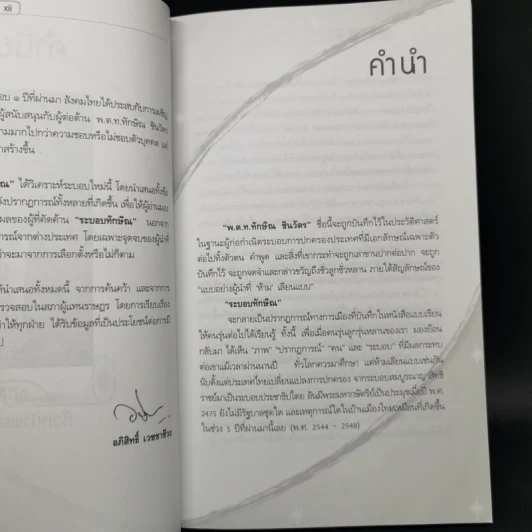 xii
อบ ๑ ปีที่ผ่านมา สังคมไทยได้ประสบกับการเผชิญ
ผู้สนับสนุนกับผู้ต่อต้าน พ.ต.ท.ทักษิณ ชินวัตร
ามมากไปกว่าความชอบหรือไม่ชอบตัวบุคคล แต่
าสร้างขึ้น
ณ" ได้วิเคราะห์ระบอบใหม่นี้ โดยนำเสนอทั้งข้อ
ังปรากฏการณ์ทั้งหลายที่เกิดขึ้น เพื่อให้ผู้อ่านมอง
ผลของผู้ที่คัดค้าน "ระบอบทักษิณ" นอกจาก
ารณ์จากต่างประเทศ โดยเฉพาะจุดจบของผู้นำที่
ว่าจะมาจากการเลือกตั้งหรือไม่ก็ตาม
นำเสนอทั้งหมดนี้ จากการค้นคว้า และจากการ
รวจสอบในสภาผู้แทนราษฎร โดยการเรียบเรียง
ำให้ทุกฝ่าย ได้รับข้อมูลที่เป็นประโยชน์ต่อการมี
ป
อภิสิทธิ์ เวชชาชีวะ
คำนำ
"พ.ต.ท.ทักษิณ ชินวัตร" ชื่อนี้จะถูกบันทึกไว้ในประวัติศาสตร์
ในฐานะผู้ก่อกำเนิดระบอบการปกครองของประเทศที่มีเอกลักษณ์เฉพาะตัว
ต่อไปทั้งตัวตน คำพูด และสิ่งที่เขากระทำจะถูกเล่าขานปากต่อปาก จะถูก
บันทึกไว้ จะถูกจดจำและกล่าวขวัญถึงชั่วลูกชั่วหลาน ภายใต้สัญลักษณ์ของ
"แบบอย่างผู้นำที่ 'ห้าม' เลียนแบบ"
"ระบอบทักษิณ"
จะกลายเป็นปรากฏการณ์ทางการเมืองที่บันทึกในหนังสือแบบเรียน
ให้คนรุ่นต่อไปได้เรียนรู้ ทั้งนี้ เพื่อเมื่อคนรุ่นลูกรุ่นหลานของเรา มองย้อน
กลับมา ได้เห็น "ภาพ" "ปรากฏการณ์" "คน" และ "ระบอบ" ที่มีผลกระทบ
ต่อเขาแม้เวลาผ่านนานปี ทั่วโลกควรมาศึกษา แต่ห้ามเลียนแบบเช่นกัน
นับตั้งแต่ประเทศไทยเปลี่ยนแปลงการปกครอง จากระบอบสมบูรณาญาสิทธิ
ราชย์มาเป็นระบอบประชาธิปไตย อันมีพระมหากษัตริย์เป็นประมุขเมื่อปี พ.ศ.
2475 ยังไม่มีรัฐบาลชุดใด และเหตุการณ์ใดในบ้านเมืองไทยเหมือนที่เกิดขึ้น
ในช่วง 5 ปีที่ผ่านมานี้เลย (พ.ศ. 2544 - 2548)